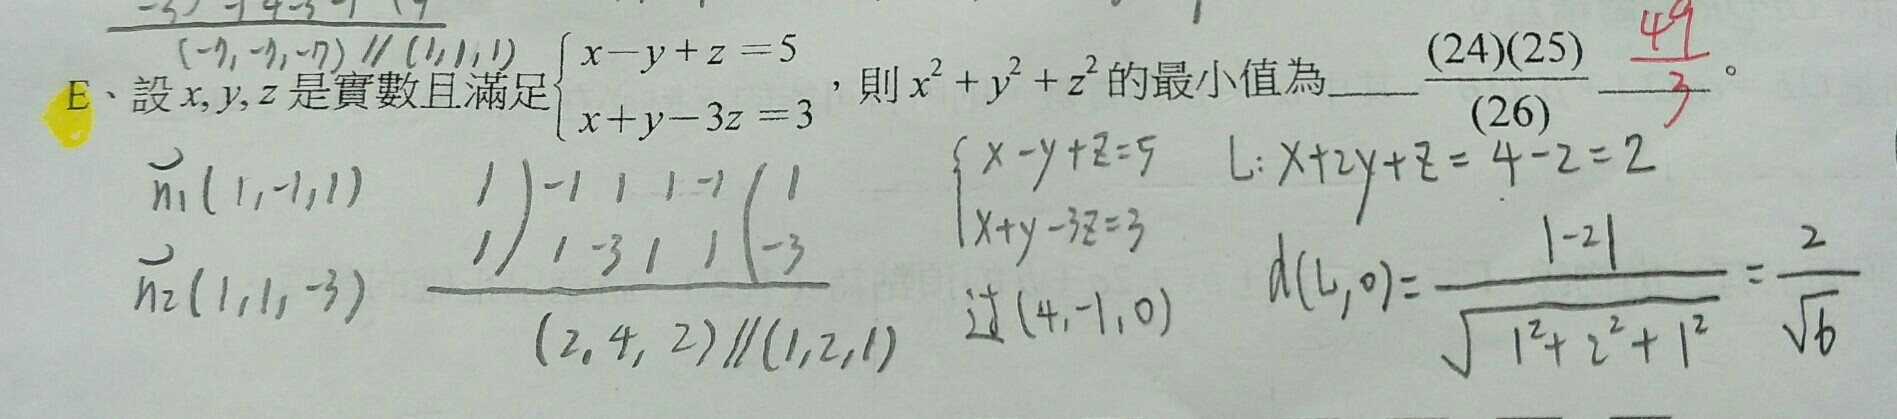 (-7, -7, -7) // (1, 1, 1)
E、設 x, y, z 是實數且滿足 { x－y＋z＝5
x＋y－3z＝3 ，則 x²＋y²＋z² 的最小值為____ (24)(25)/(26) ____ 49/3 。
n₁(1, -1, 1)
n₂(1, 1, -3)
1 ) -1 1 1 -1 ( 1
1 ) 1 -3 1 1 ( -3
(2, 4, 2) // (1, 2, 1)
{ x-y+z=5
x+y-3z=3
过(4, -1, 0)
L: x+2y+z = 4-2 = 2
d(L, 0) = |-2| / √(1²+2²+1²) = 2/√6